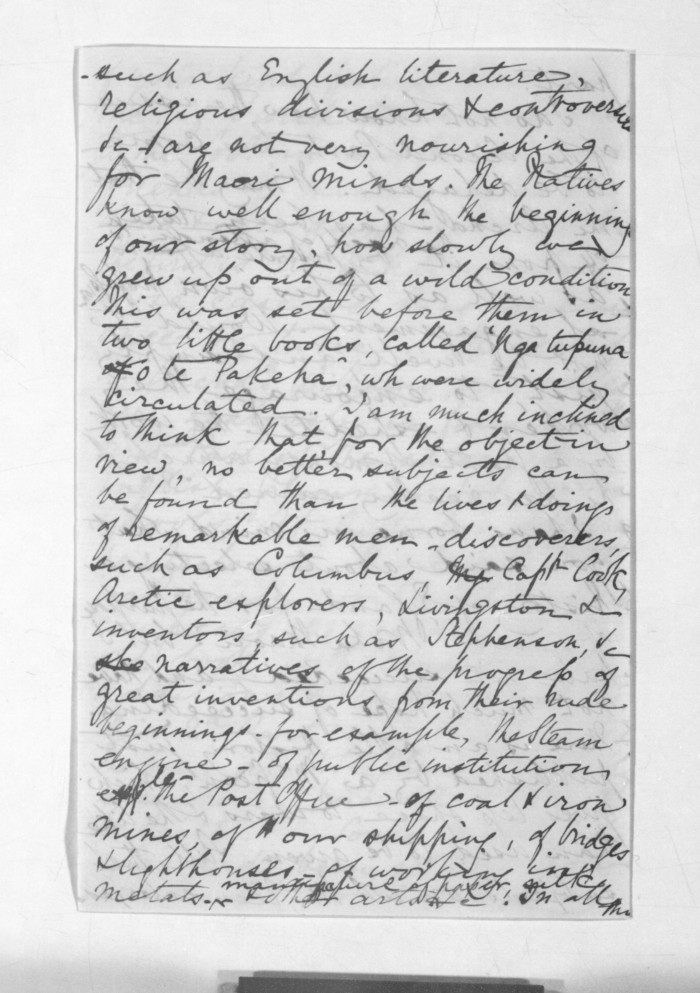 - such as English literature,
religious divisions & controversies
&c - are not very nourishing
for Maori minds. The Natives
know well enough the beginning
of our story, how slowly we
grew up out of a wild condition
This was set before them in
two little books, called "Nga tupuna
o te Pakeha", wh were widely
circulated. I am much inclined
to think that, for the object in
view, no better subjects can
be found than the lives & doings
of remarkable men - discoverers,
such as Columbus, Capt Cook,
Arctic explorers, Livingston &
inventors, such as Stephenson, &c
narratives of the progress of
great inventions from their rude
beginnings - for example, the Steam
engine - of public institutions
the Post Office - of coal & iron
mines, of our shipping, of bridges
& lighthouses - of working in
manufacture of paper, silk
metals - & other arts &c. In all the